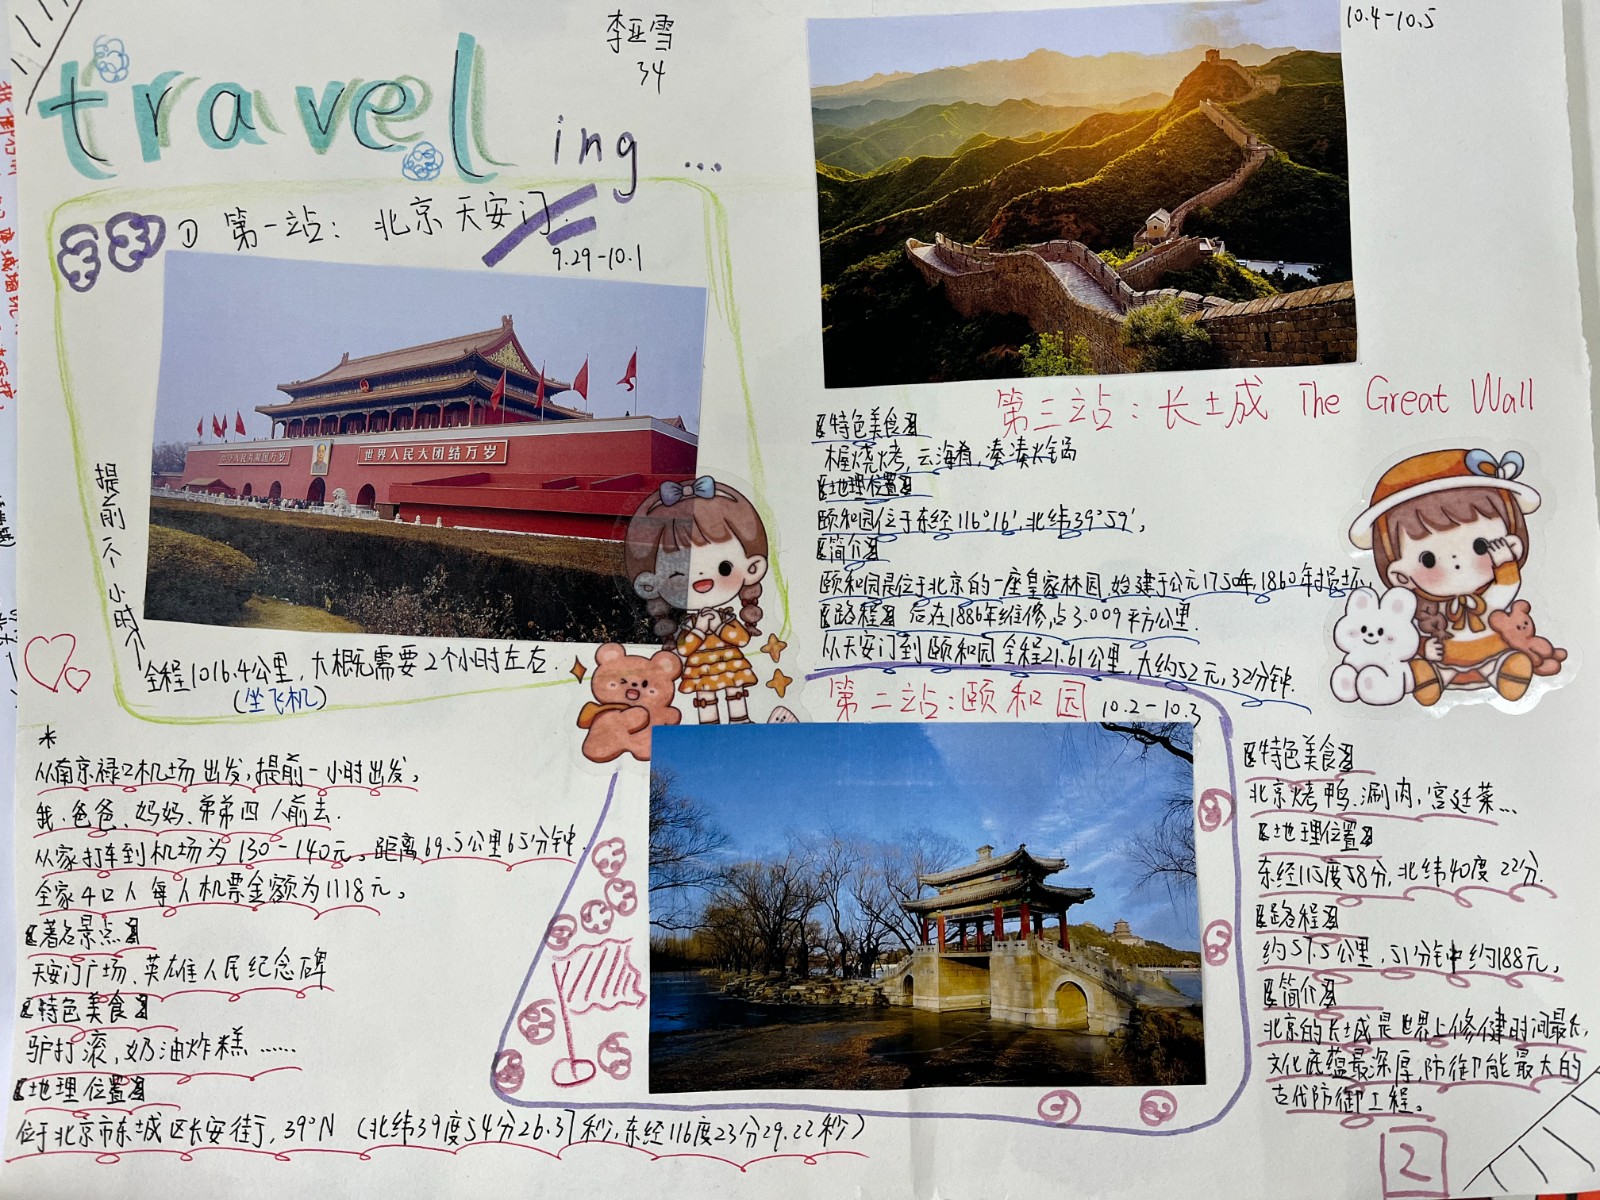 traveling...
李亚雪
34
① 第一站：北京天安门.
9.29-10.1
中华人民共和国万岁
世界人民大团结万岁
提前一个小时
全程1016.4公里，大概需要2个小时左右.
(坐飞机)
*
从南京禄口机场出发，提前一小时出发，
我、爸爸、妈妈、弟弟四人前去.
从家打车到机场为130-140元，距离69.5公里65分钟.
全家4口人每人机票金额为1118元。
【著名景点】
天安门广场、英雄人民纪念碑
【特色美食】
驴打滚，奶油炸糕……
【地理位置】
位于北京市东城区长安街，39°N（北纬39度54分26.37秒，东经116度23分29.22秒）
10.4-10.5
第三站：长城 The Great Wall
【特色美食】
烧烤，云海肴，凑凑火锅
【地理位置】
颐和园位于东经116°16′，北纬39°59′，
【简介】
颐和园是位于北京的一座皇家林园，始建于公元1750年，1860年损坏，
后在1886年维修，占3.009平方公里.
【路程】
从天安门到颐和园全程21.61公里，大约52元，32分钟.
第二站：颐和园
10.2-10.3
【特色美食】
北京烤鸭、涮肉，宫廷菜...
【地理位置】
东经115度58分，北纬40度22分.
【路程】
约57.5公里，51分钟约188元，
【简介】
北京的长城是世界上修健时间最长，
文化底蕴最深厚，防御能最大的
古代防御工程。
2